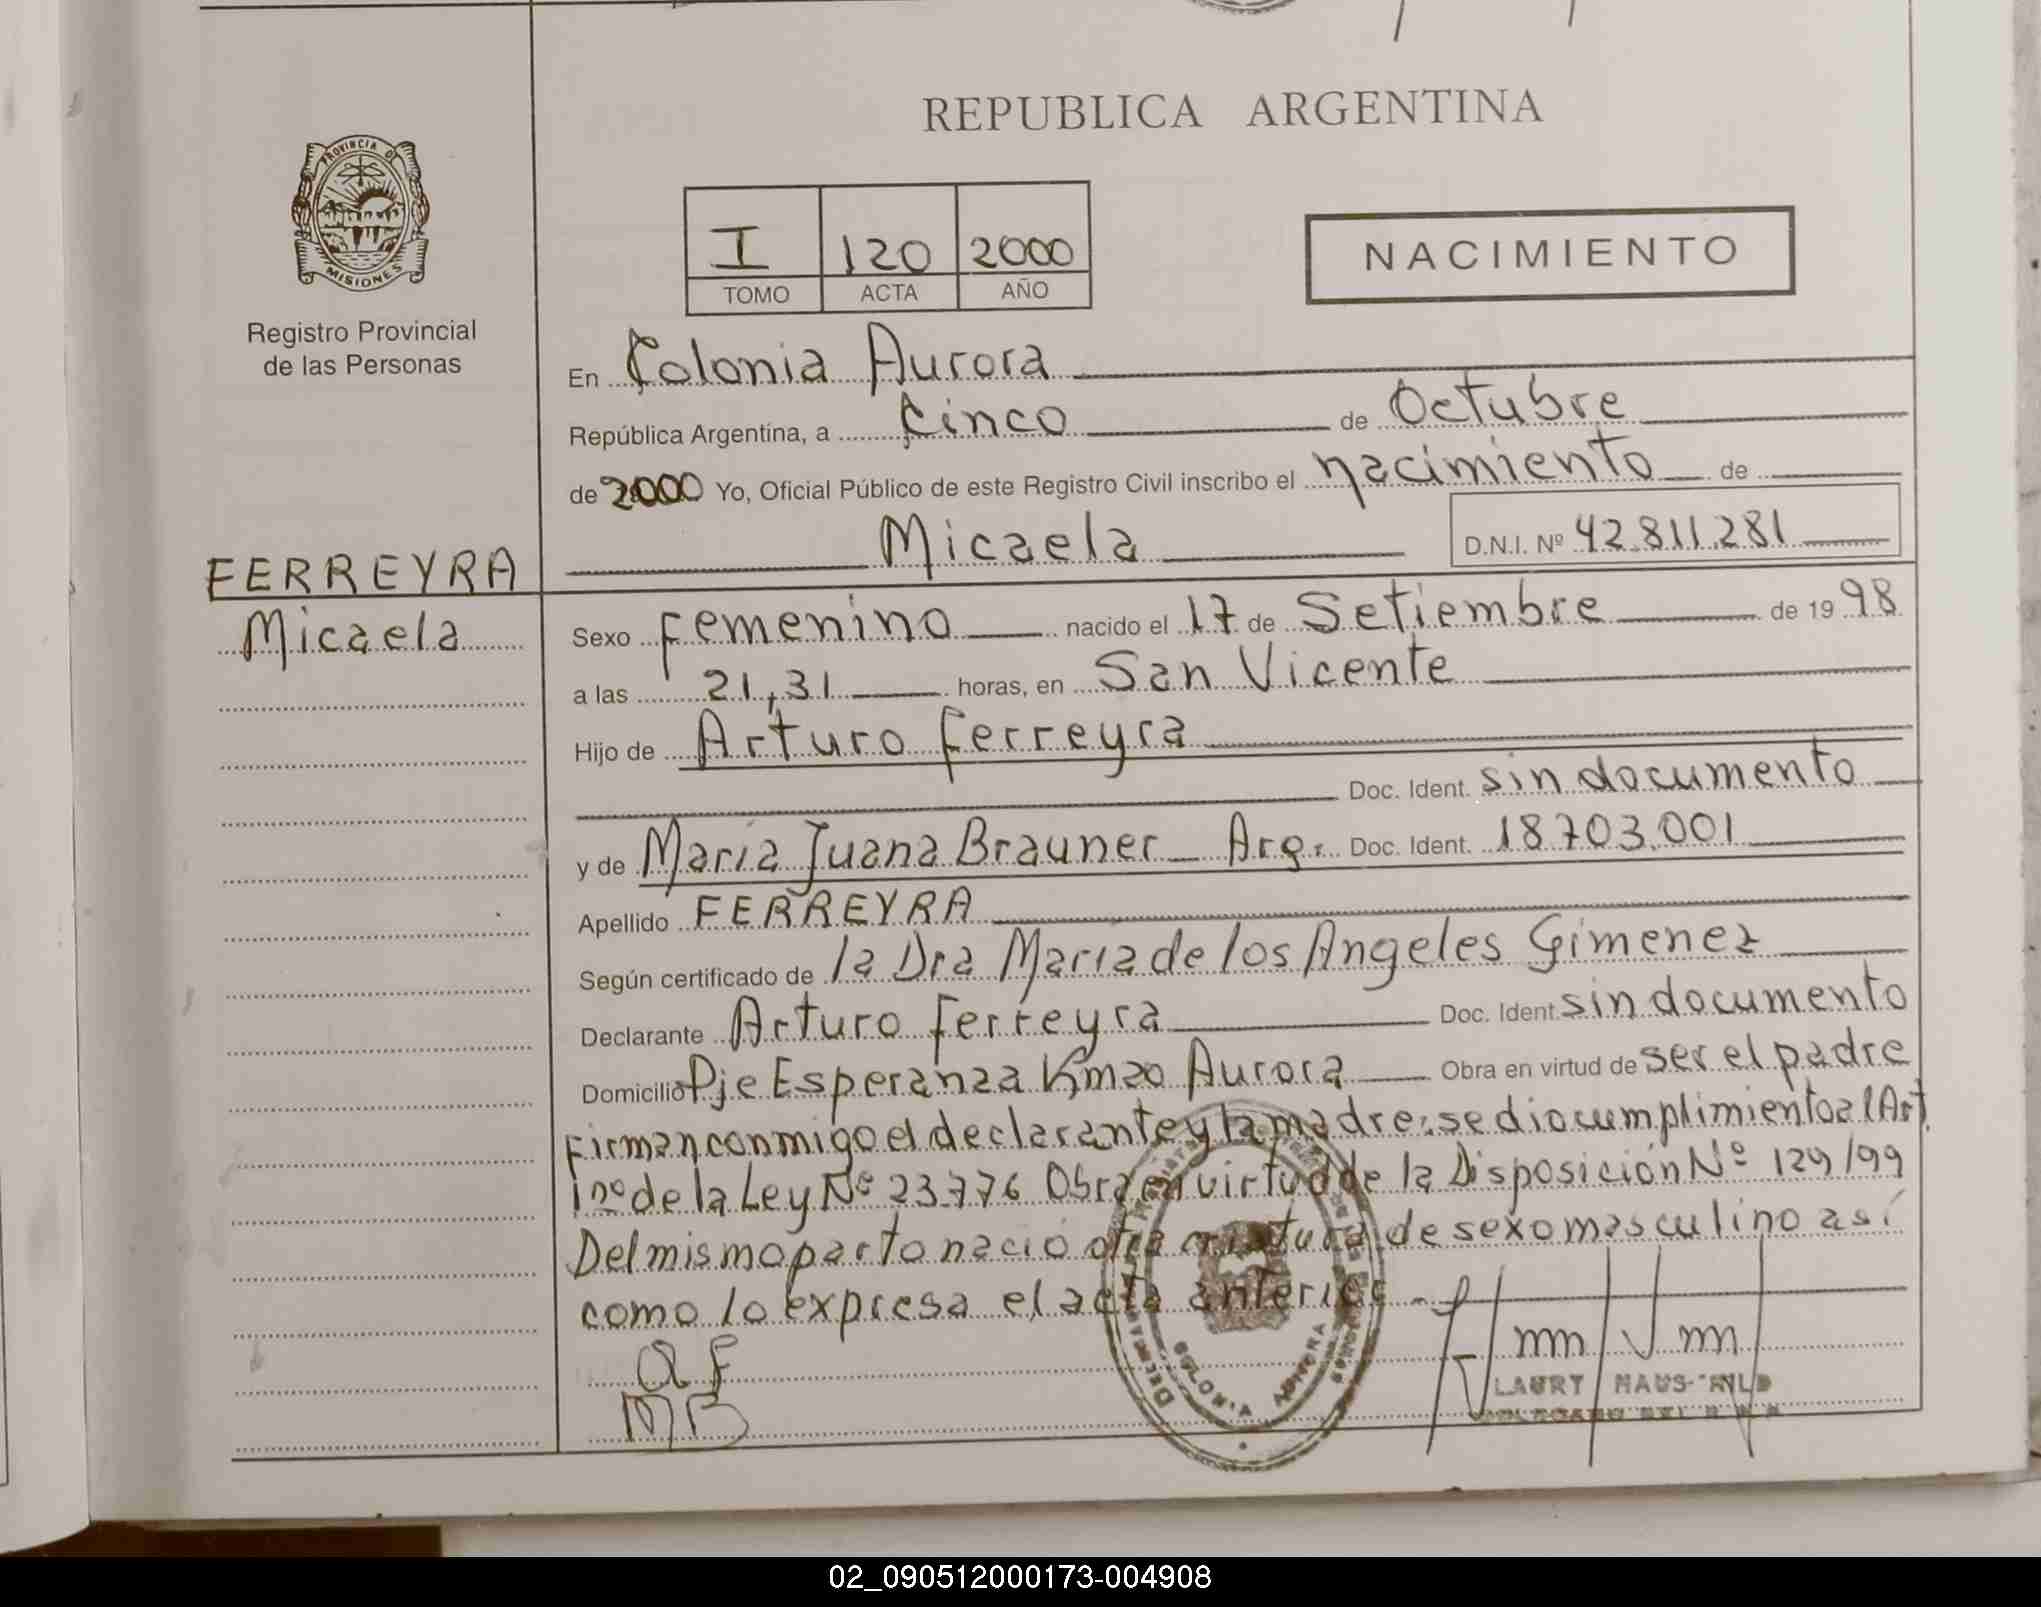 REPUBLICA ARGENTINA
PROVINCIA DE
MISIONES
Registro Provincial
de las Personas
I 120 2000
TOMO ACTA AÑO
NACIMIENTO
En Colonia Aurora
República Argentina, a Cinco de Octubre
de 2000 Yo, Oficial Público de este Registro Civil inscribo el nacimiento de
Micaela D.N.I. Nº 42.811.281
FERREYRA
Micaela
Sexo Femenino nacido el 17 de Setiembre de 1998
a las 21,31 horas, en San Vicente
Hijo de Arturo Ferreyra
Doc. Ident. sin documento
y de María Juana Brauner Arg. Doc. Ident. 18.703.001
Apellido FERREYRA
Según certificado de la Dra María de los Angeles Gimenez
Declarante Arturo Ferreyra Doc. Ident. sin documento
Domicilio Pje Esperanza Km20 Aurora Obra en virtud de ser el padre
Firman conmigo el declarante y la madre: se dio cumplimiento al Art
1nº de la Ley Nº 23.776 Obra en virtud de la Disposición Nº 129/99
Del mismo parto nació otra criatura de sexo masculino así
como lo expresa el acta anterior
a f
MB
LAURY
AURORA
02_090512000173-004908